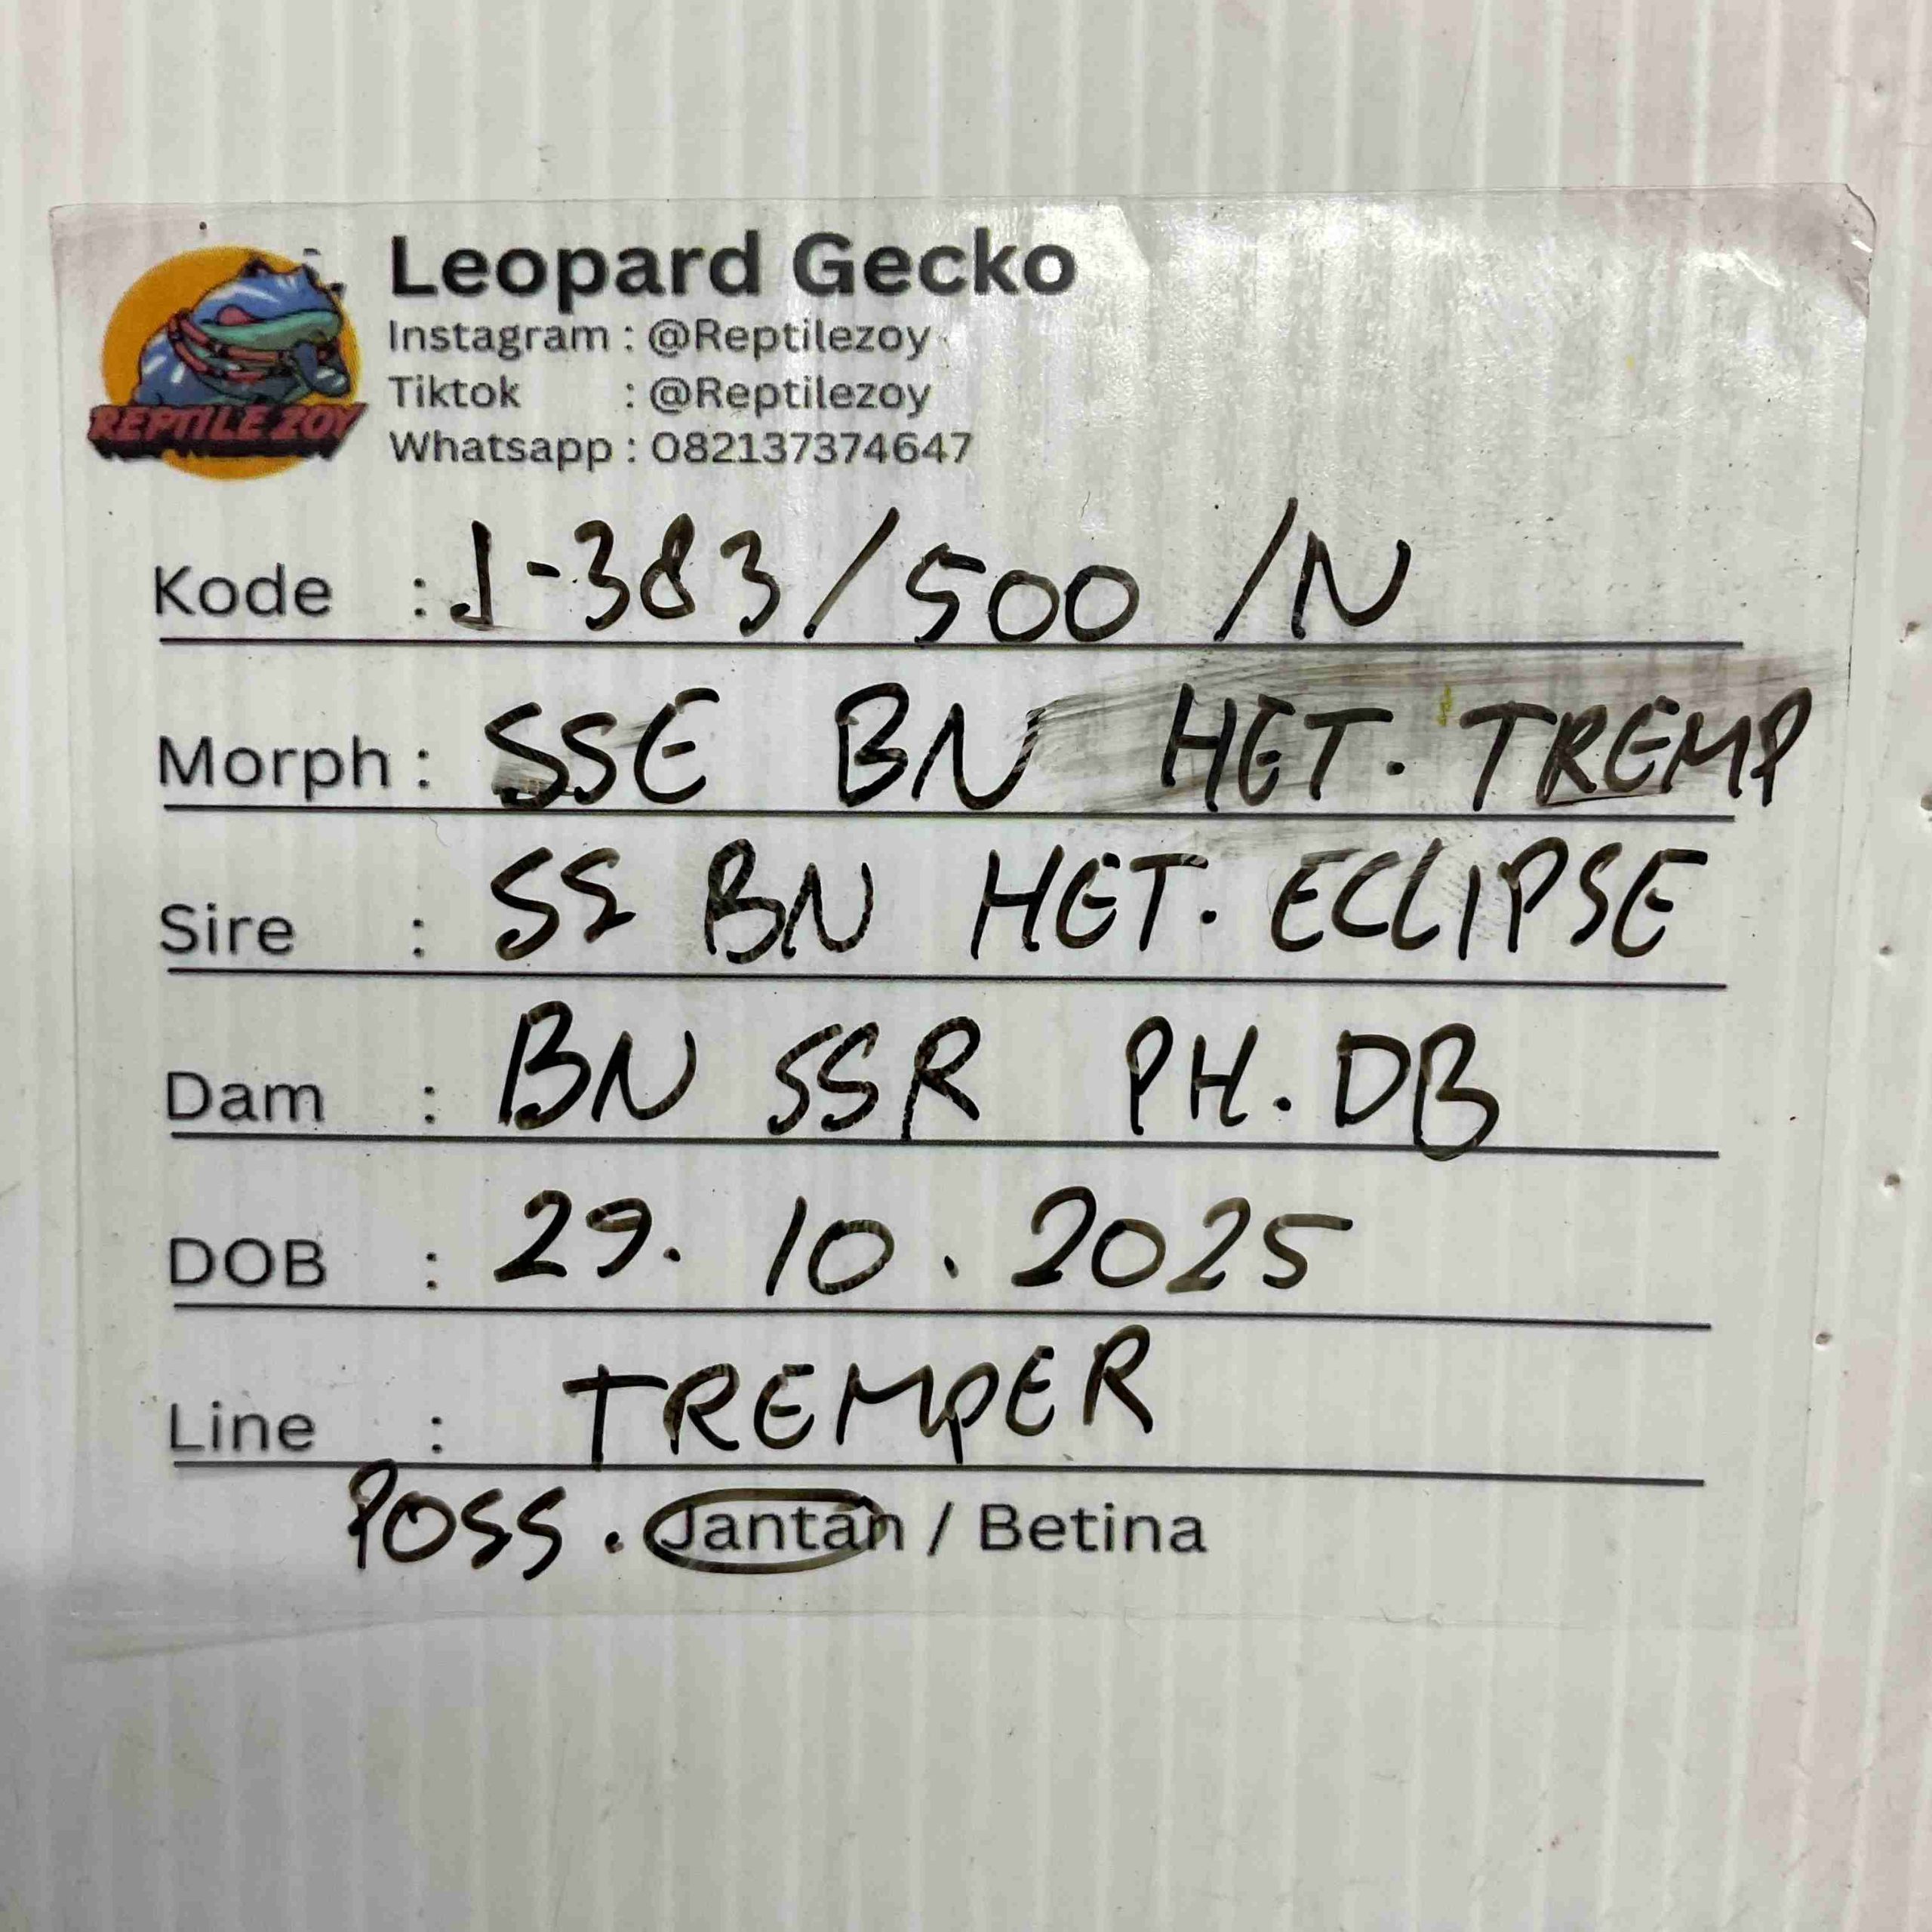 Leopard Gecko
Instagram : @Reptilezoy
Tiktok : @Reptilezoy
Whatsapp : 082137374647
REPTILE ZOY
Kode : J-383/500 /N
Morph : SSE BN HET. TREMP
Sire : SS BN HET. ECLIPSE
Dam : BN SSR PH. DB
DOB : 29. 10. 2025
Line : TREMPER
POSS. Jantan / Betina